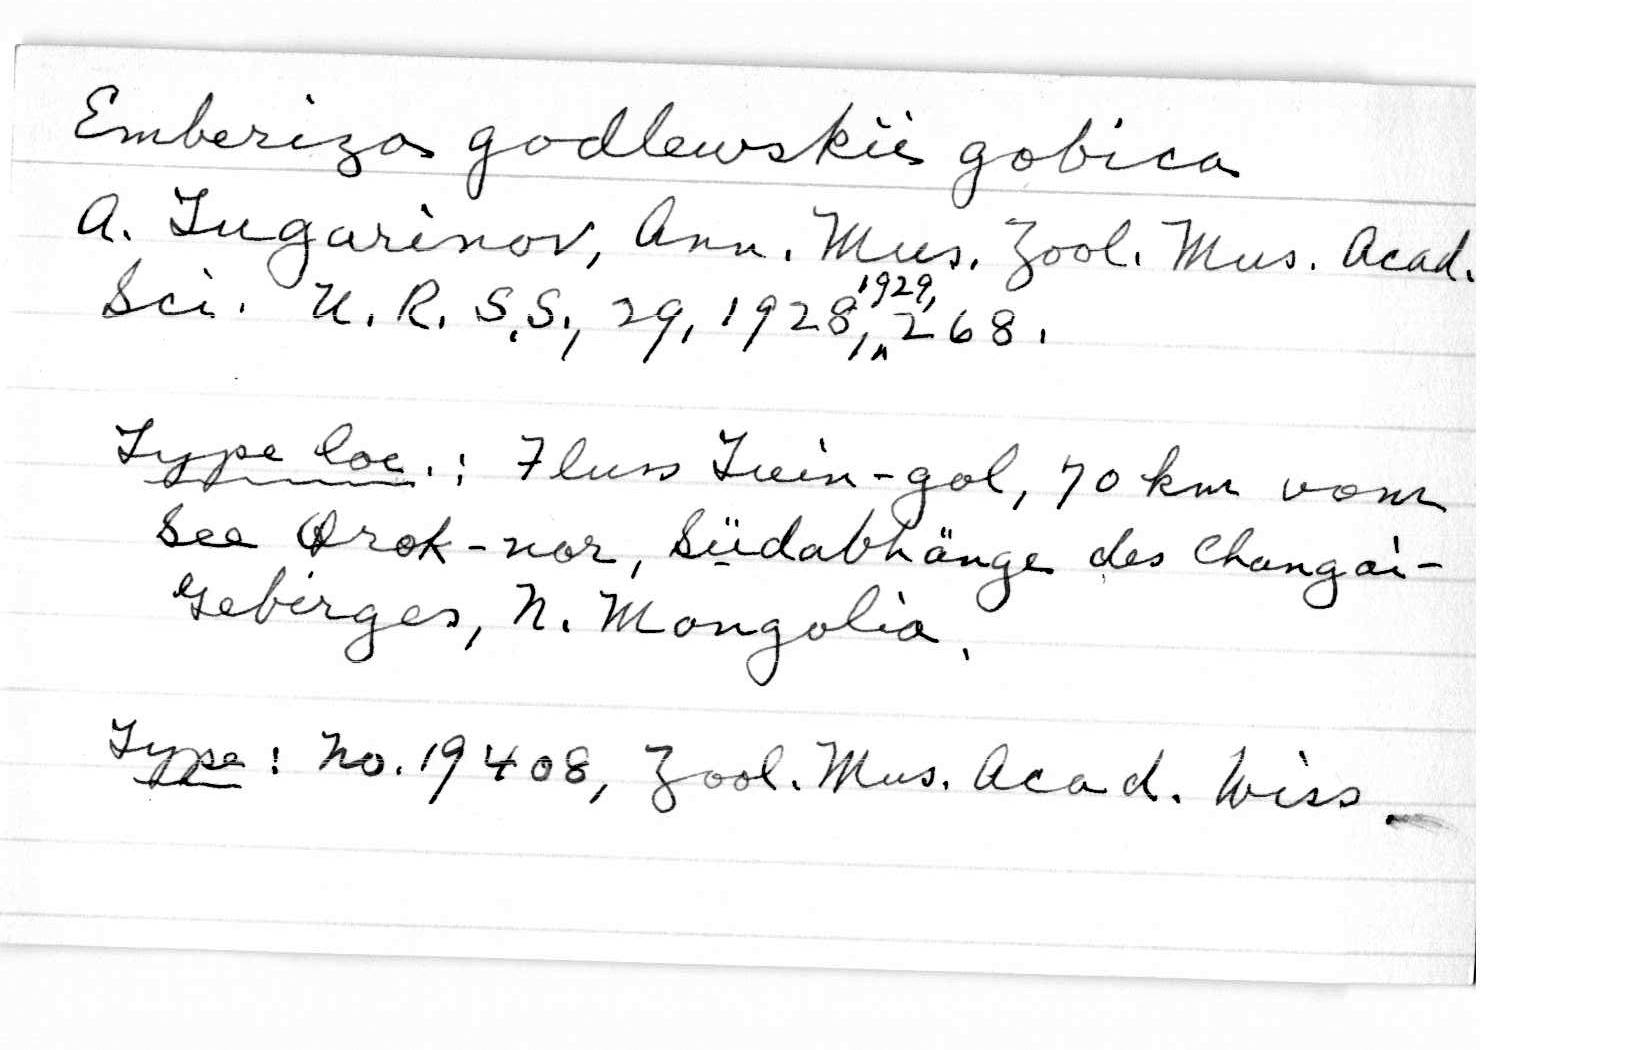 Emberiza godlewskii gobica
A. Tugarinov, Ann. Mus. Zool. Mus. Acad.
Sci. U.R.S.S., 29, 1928, 1929, 268.
Type loc.: Fluss Tuin-gol, 70 km vom
See Orok-nor, Südabhänge des Changai-
Gebirges, N. Mongolia.
Type: No. 19408, Zool. Mus. Acad. Wiss.